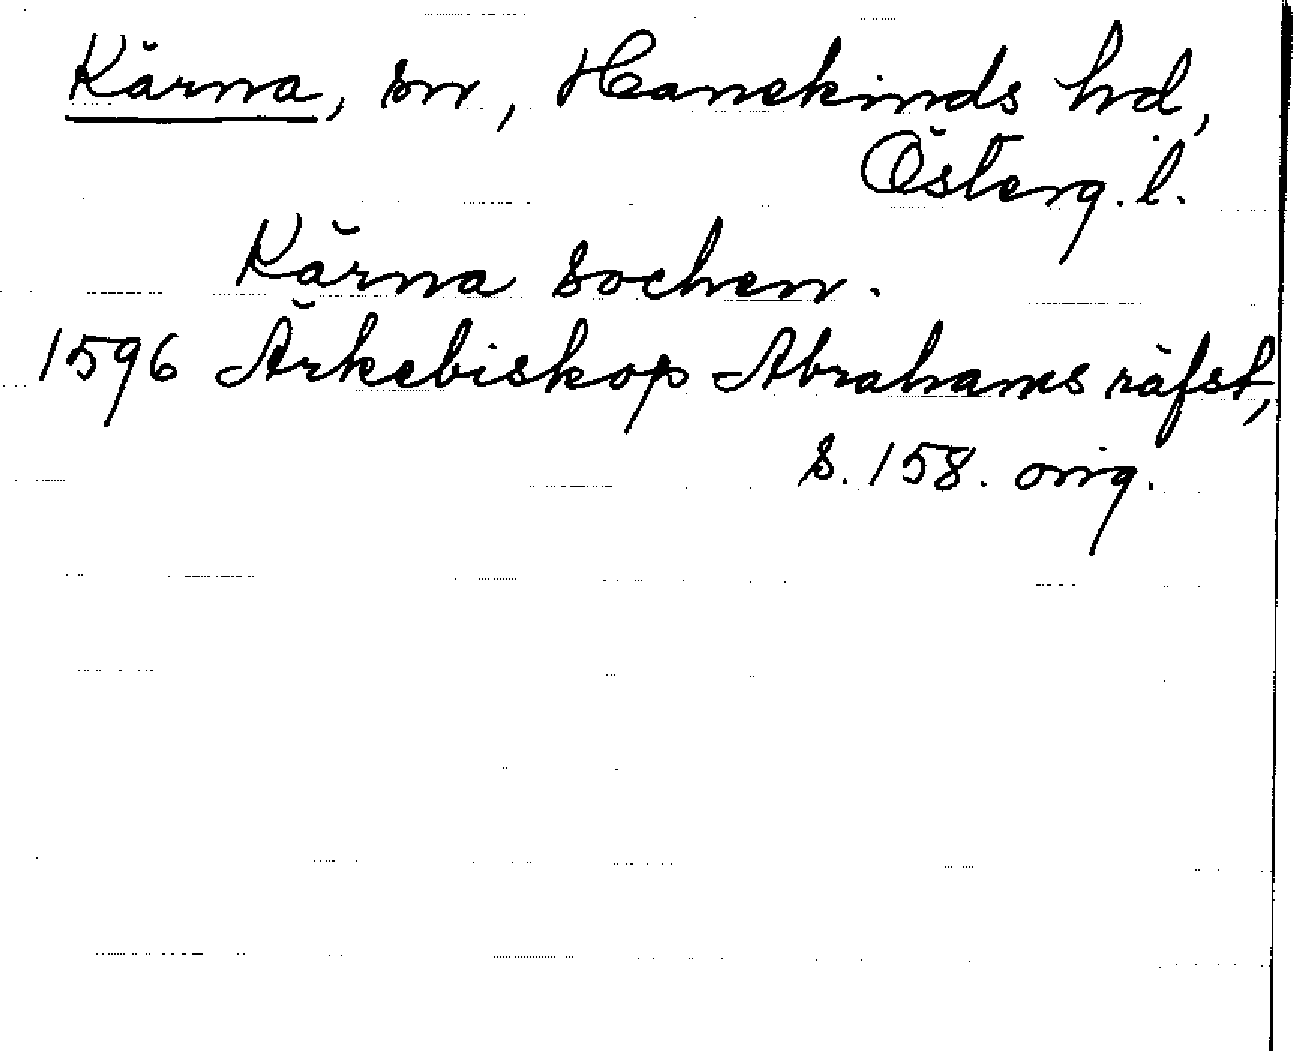 Kärna, sn, Hanekinds hd,
Österg. l.
Kärna sochen.
1596 Ärkebiskop Abrahams räfst,
s. 158. orig.